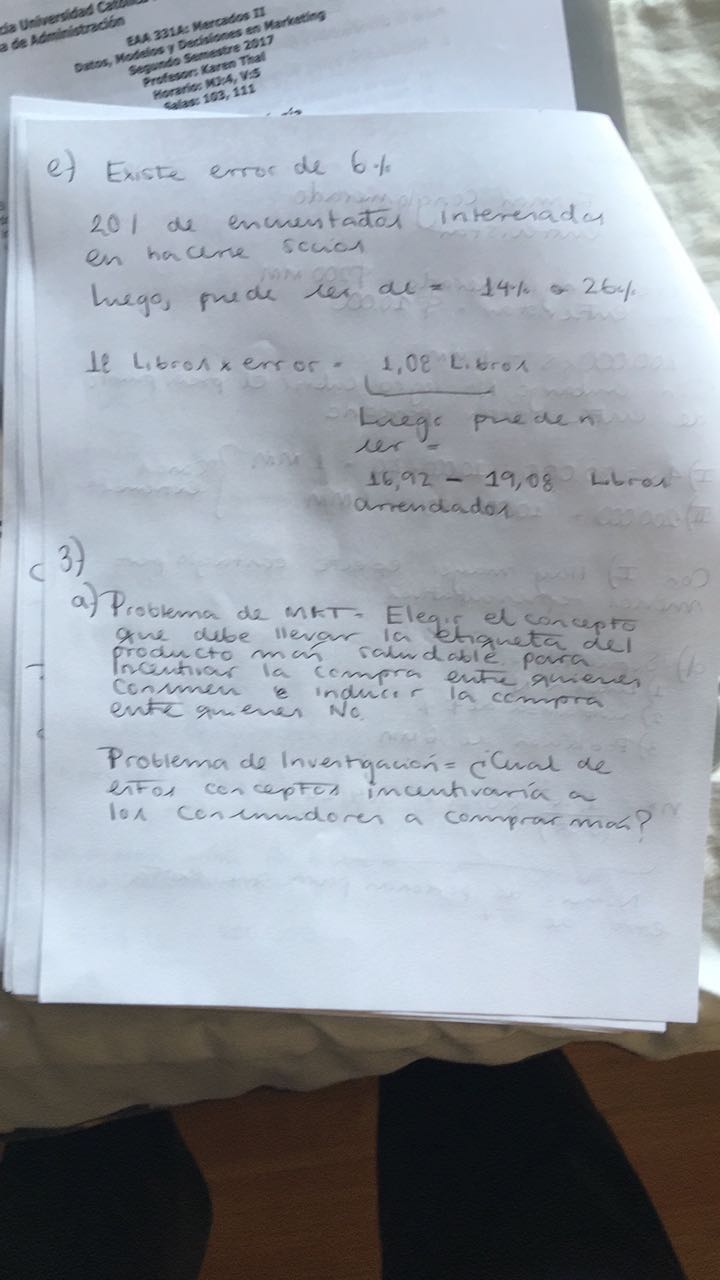 cia Universidad Católic
a de Administración
EAA 331A: Mercados II
Datos, Modelos y Decisiones en Marketing
Segundo Semestre 2017
Profesor: Karen Thal
Horario: MJ:4, V:5
Salas: 103, 111
e) Existe error de 6%
20% de encuestados interesados
en hacerse socios
Luego, puede ser de = 14% o 26%
18 Libros x error = 1,08 Libros
Luego pueden
ser =
16,92 - 19,08 Libros
arrendados
3)
a) Problema de MKT = Elegir el concepto
que debe llevar la etiqueta del
producto más saludable para
incentivar la compra entre quienes
consumen e inducir la compra
entre quienes No.
Problema de Investigación = ¿Cual de
estos conceptos incentivaría a
los consumidores a comprar más?